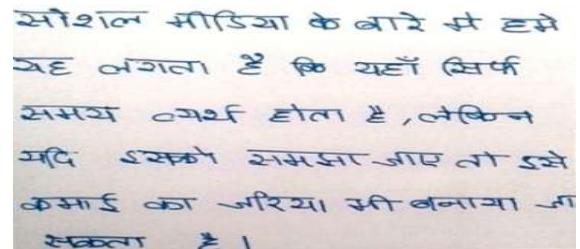 सोशल मीडिया के बारे मे हमे
यह लगता है कि यहाँ सिर्फ
समय व्यर्थ होता है ,लेकिन
यदि इसको समझा जाए तो इसे
कमाई का जरिया भी बनाया जा
सकता है ।